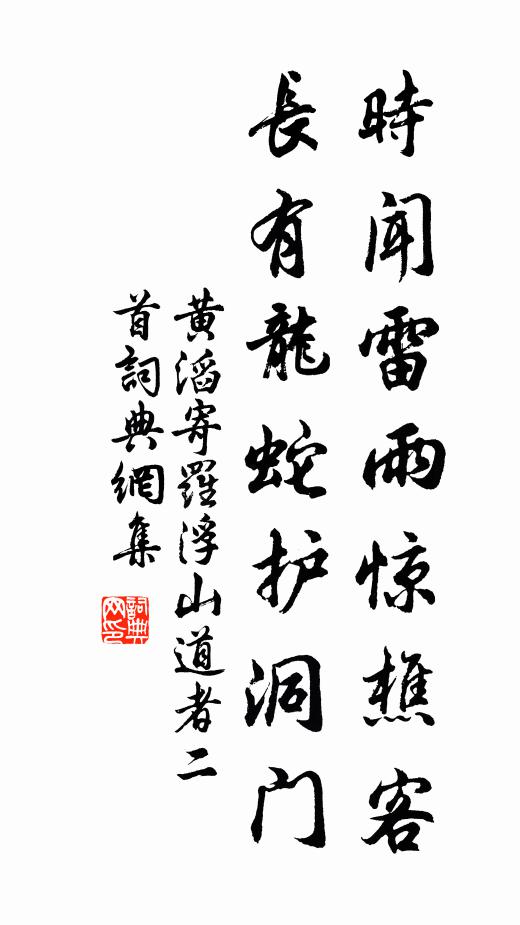 時聞雷雨惊樵客
長有龍蛇护洞门
黄滔寄羅浮山道者二
首詞典網集
詞典
网印